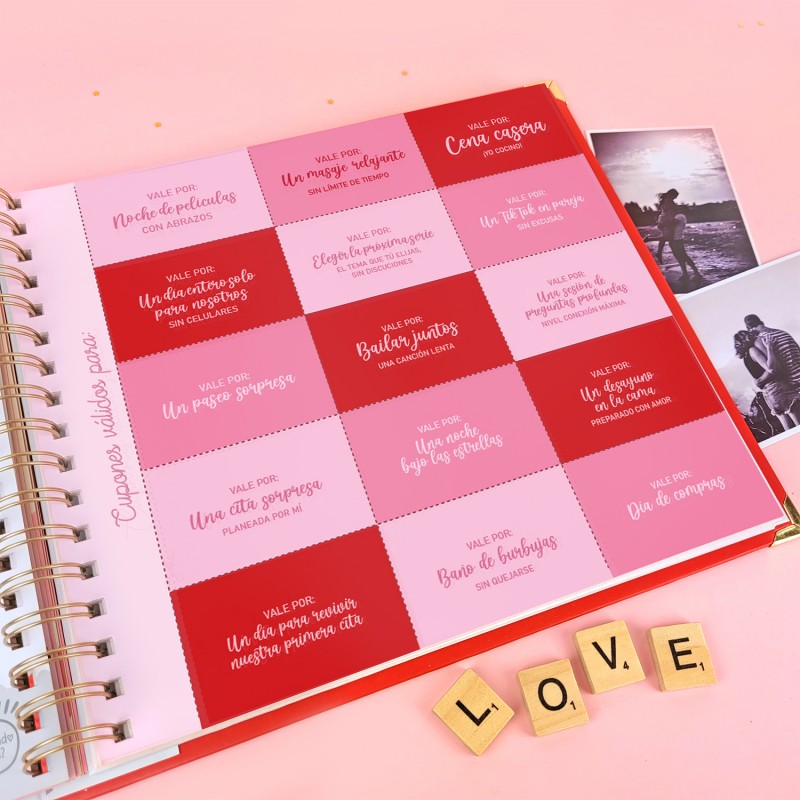 Cupones válidos para:
VALE POR:
Noche de películas
CON ABRAZOS
VALE POR:
Un masaje relajante
SIN LÍMITE DE TIEMPO
VALE POR:
Cena casera
¡YO COCINO!
VALE POR:
Un día entero solo
para nosotros
SIN CELULARES
VALE POR:
Elegir la próxima serie
EL TEMA QUE TÚ ELIJAS,
SIN DISCUCIONES
VALE POR:
Un TikTok en pareja
SIN EXCUSAS
VALE POR:
Un paseo sorpresa
VALE POR:
Bailar juntos
UNA CANCIÓN LENTA
VALE POR:
Una sesión de
preguntas profundas
NIVEL CONEXIÓN MÁXIMA
VALE POR:
Una cita sorpresa
PLANEADA POR MÍ
VALE POR:
Una noche
bajo las estrellas
VALE POR:
Un desayuno
en la cama
PREPARADO CON AMOR
VALE POR:
Un día para revivir
nuestra primera cita
VALE POR:
Baño de burbujas
SIN QUEJARSE
VALE POR:
Día de compras
L1 O1 V4 E1